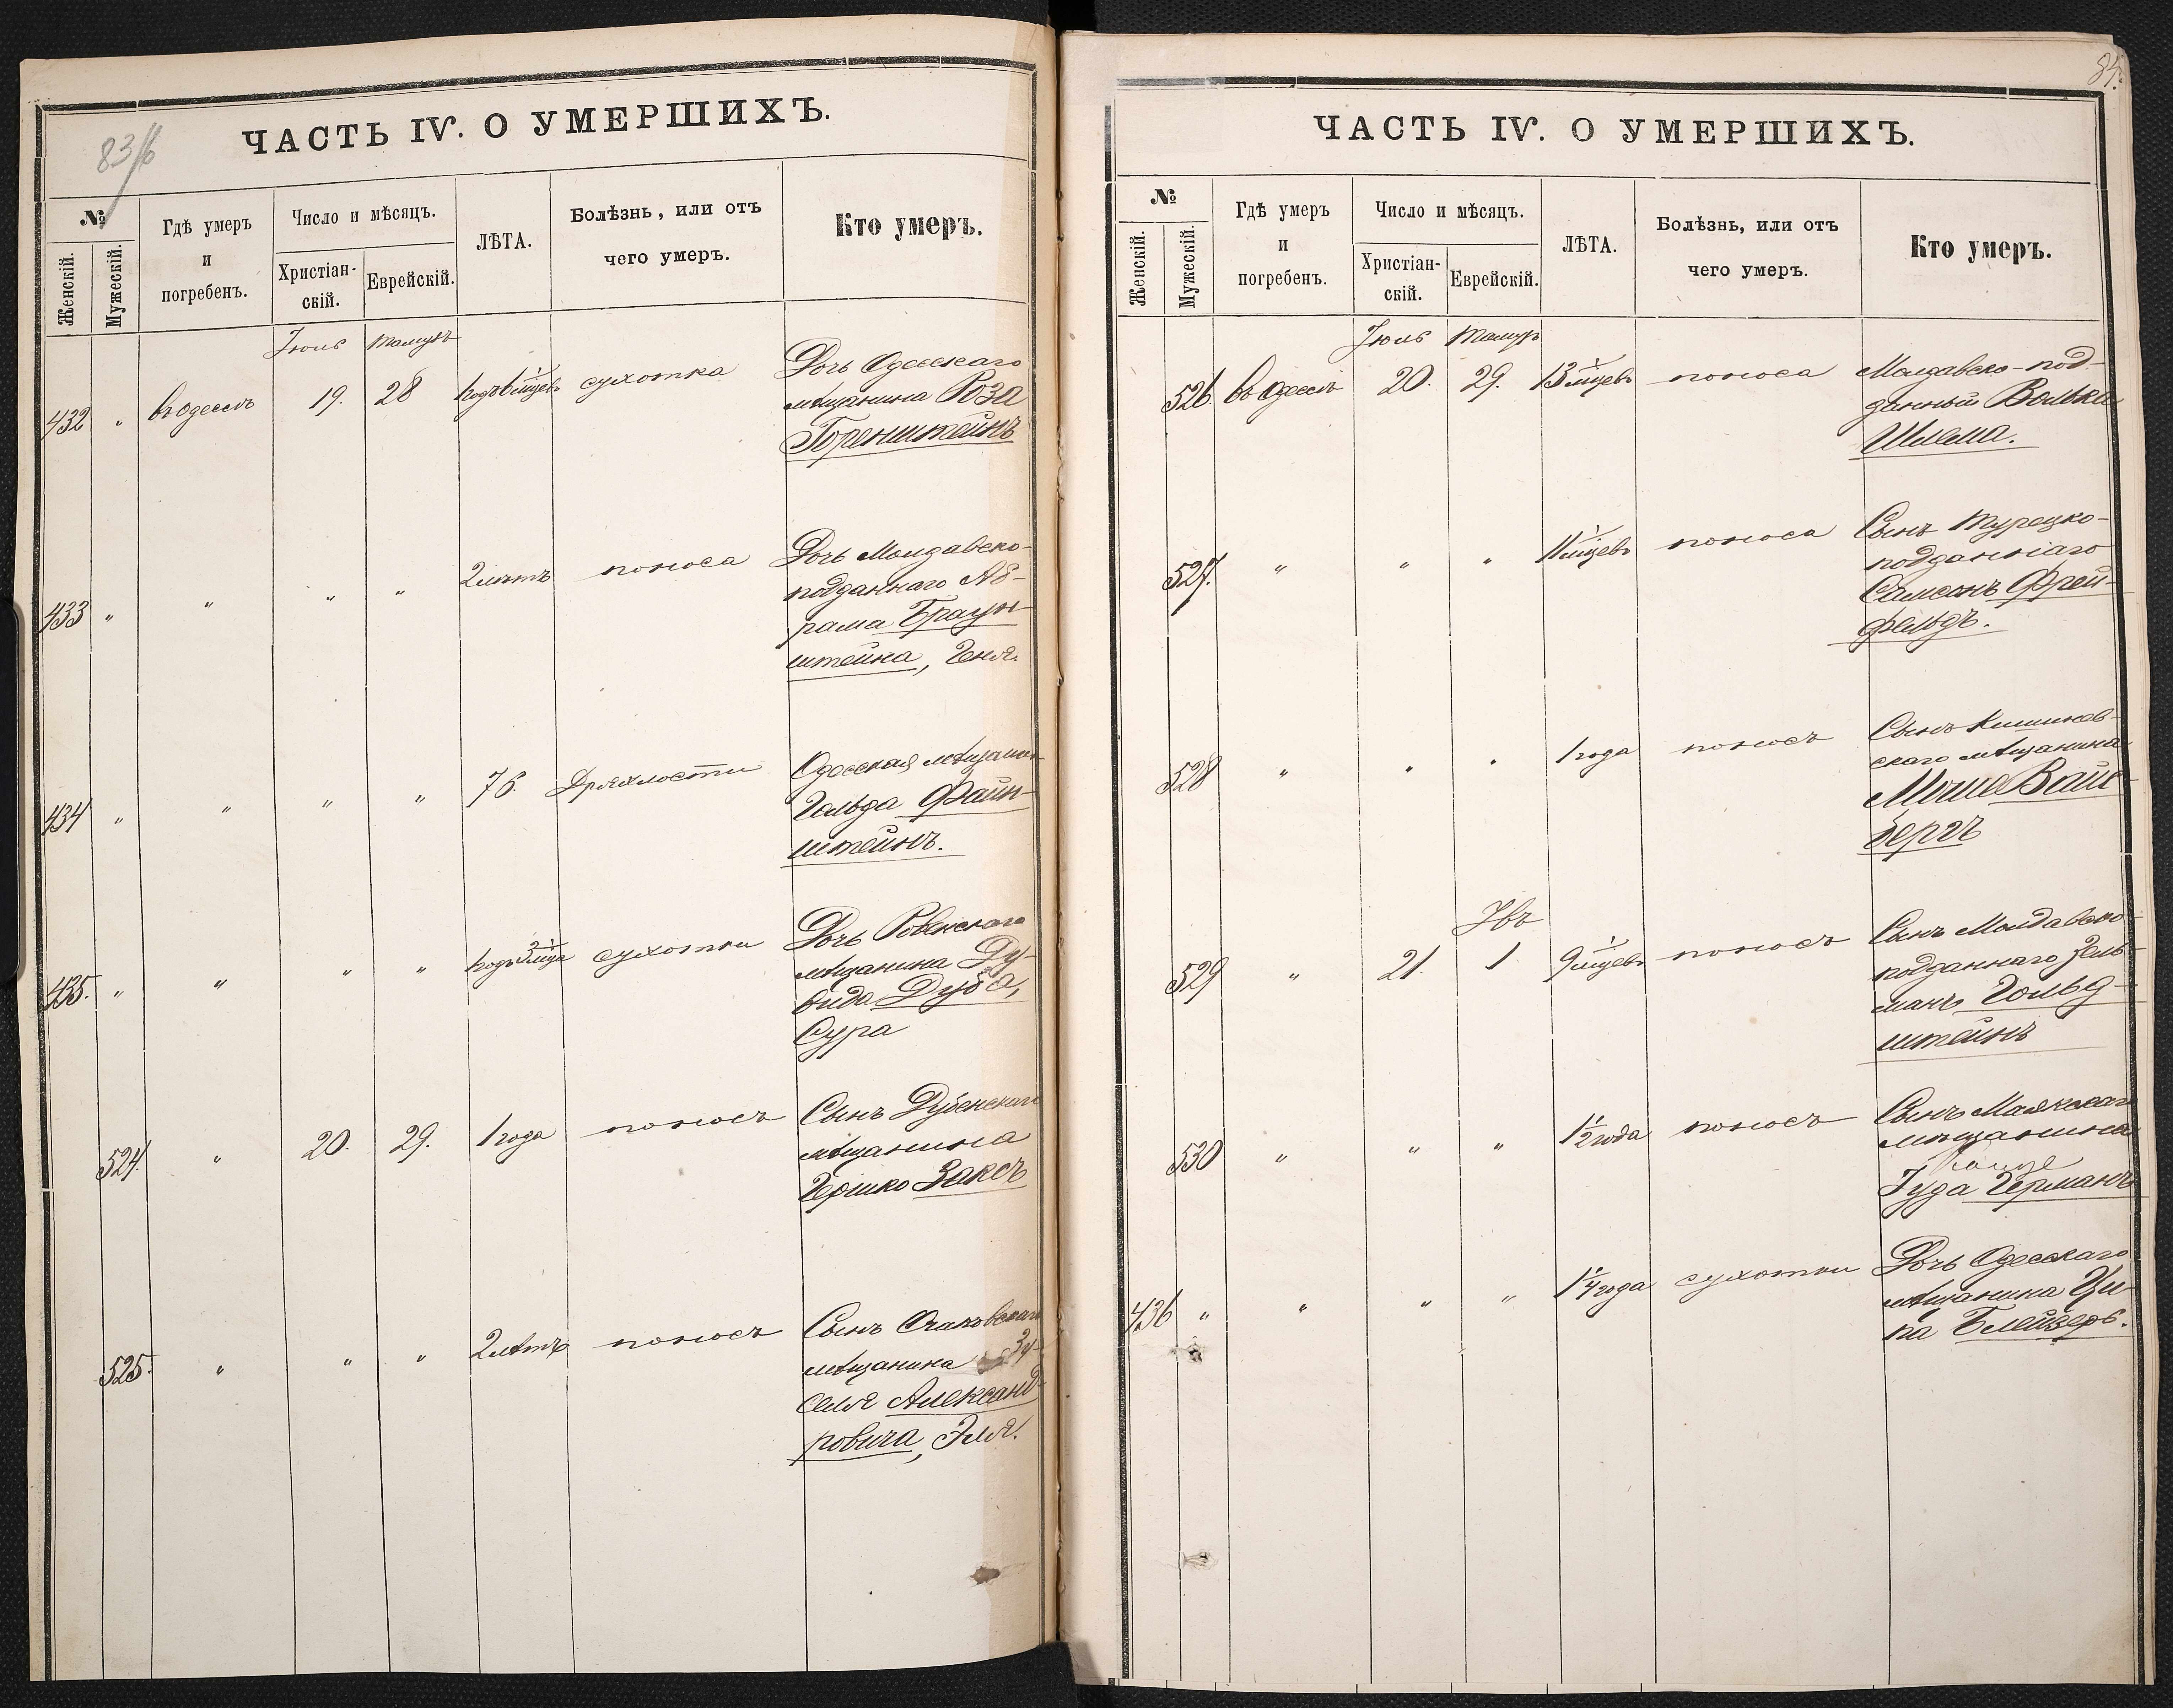 83/б
ЧАСТЬ IV. О УМЕРШИХЪ.
№
Женскій.
Мужескій.
Гдѣ умеръ
и
погребенъ.
Число и мѣсяцъ.
Христіан-
скій.
Еврейскій.
ЛѢТА.
Болѣзнь, или отъ
чего умеръ.
Кто умеръ.
Іюль Тамузъ
432 " въ Одессѣ 19. 28 сухотка
Дочь Одесскаго
мѣщанина Роза
Горенштейнъ
433 " " " " 2 лѣтъ поноса
Дочь Молдавско-
подданнаго Аб-
рама Браун-
штейна, Геня.
434 " " " " 76 Дряхлости
Одесская мѣщанка
Гольда Файн-
штейнъ.
435. " " " " сухотки
Дочь Ровенскаго
мѣщанина Ду-
вида Дуба,
Сура
524. " 20. 29. 1 года поносъ
Сынъ Дубенскаго
мѣщанина
Гершко Заксъ
525. " " " 2 лѣтъ поносъ
Сынъ Очаковскаго
мѣщанина Зу-
селя Александ-
ровича, Эля.
84.
ЧАСТЬ IV. О УМЕРШИХЪ.
№
Женскій.
Мужескій.
Гдѣ умеръ
и
погребенъ.
Число и мѣсяцъ.
Христіан-
скій.
Еврейскій.
ЛѢТА.
Болѣзнь, или отъ
чего умеръ.
Кто умеръ.
Іюль Тамузъ
526 въ Одессѣ 20. 29. 13 мѣсяцевъ поноса
Молдавско-под-
данный Волька
Шлема.
527. " " " 11 мѣсяцевъ поноса
Сынъ Турецко-
подданнаго
Самсонъ Фрей-
фельдъ.
528 " " " 1 года поносъ
Сынъ Кишинев-
скаго мѣщанина
Моше Вайс-
бергъ
Овъ
529 " 21. 1 9 мѣсяцевъ поносъ
Сынъ Молдавско-
подданнаго Зель-
манъ Гольд-
штейнъ
530 " " " 1 1/2 года поносъ
Сынъ Маякскаго
мѣщанина
Іуда Германъ
436 " " " " 1 1/4 года сухотки
Дочь Одесскаго
мѣщанина Ци-
па Блейзеръ.